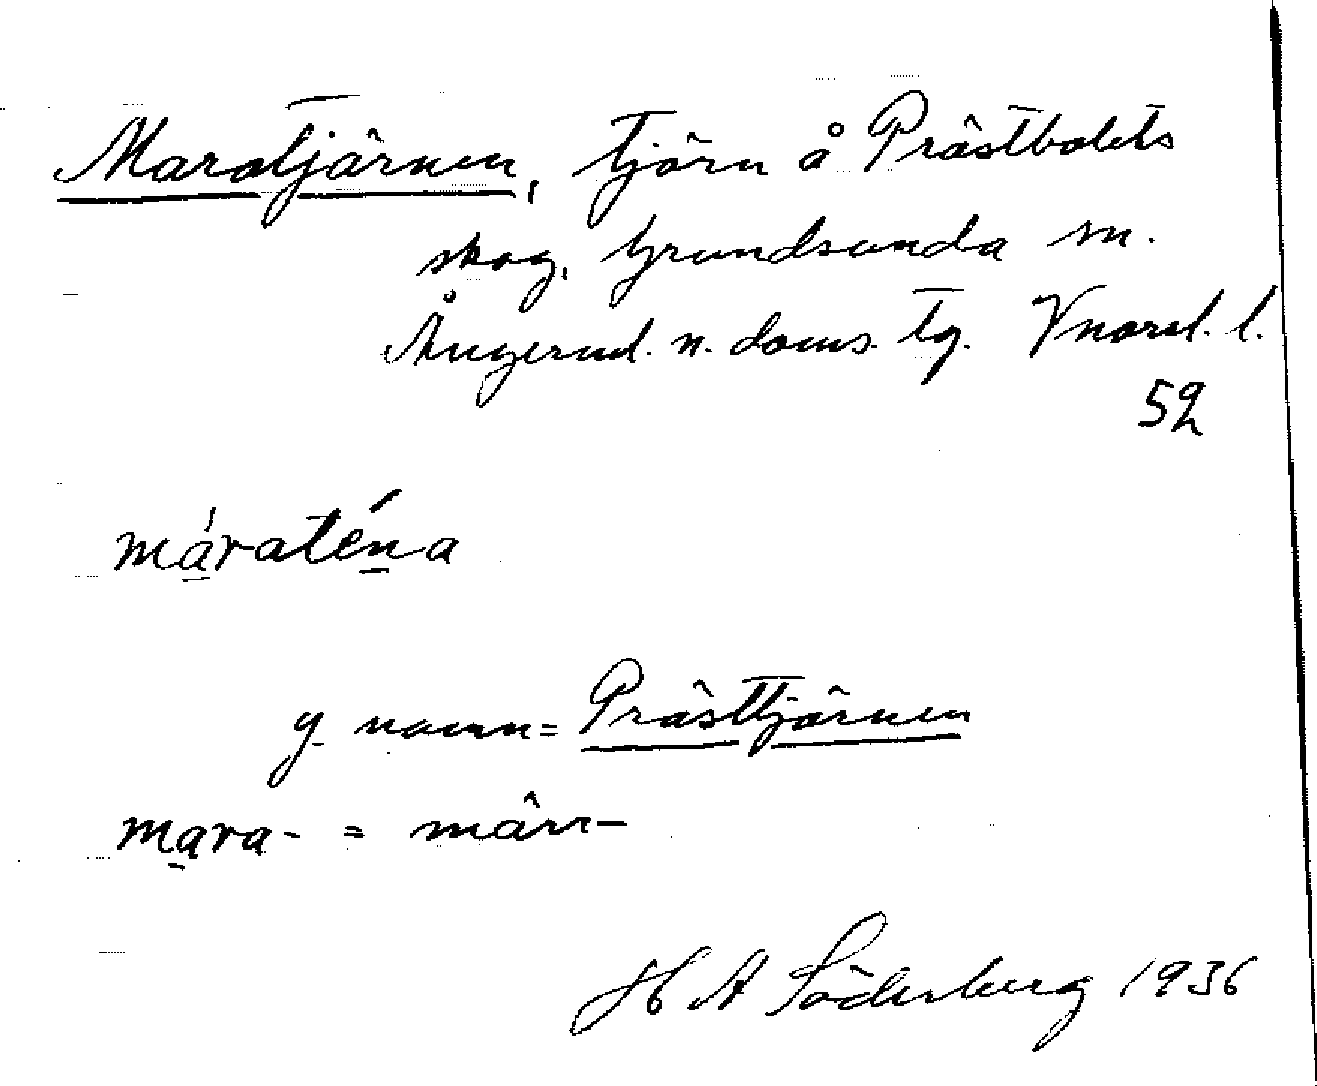 Maratjärnen, tjärn å Prästbolets
skog, Grundsunda sn.
Ångerml. n. doms. tg. Vnorrl. l.
52
máraténa
g namn = Prästtjärnen
mara- = märr-
H A Söderberg 1936